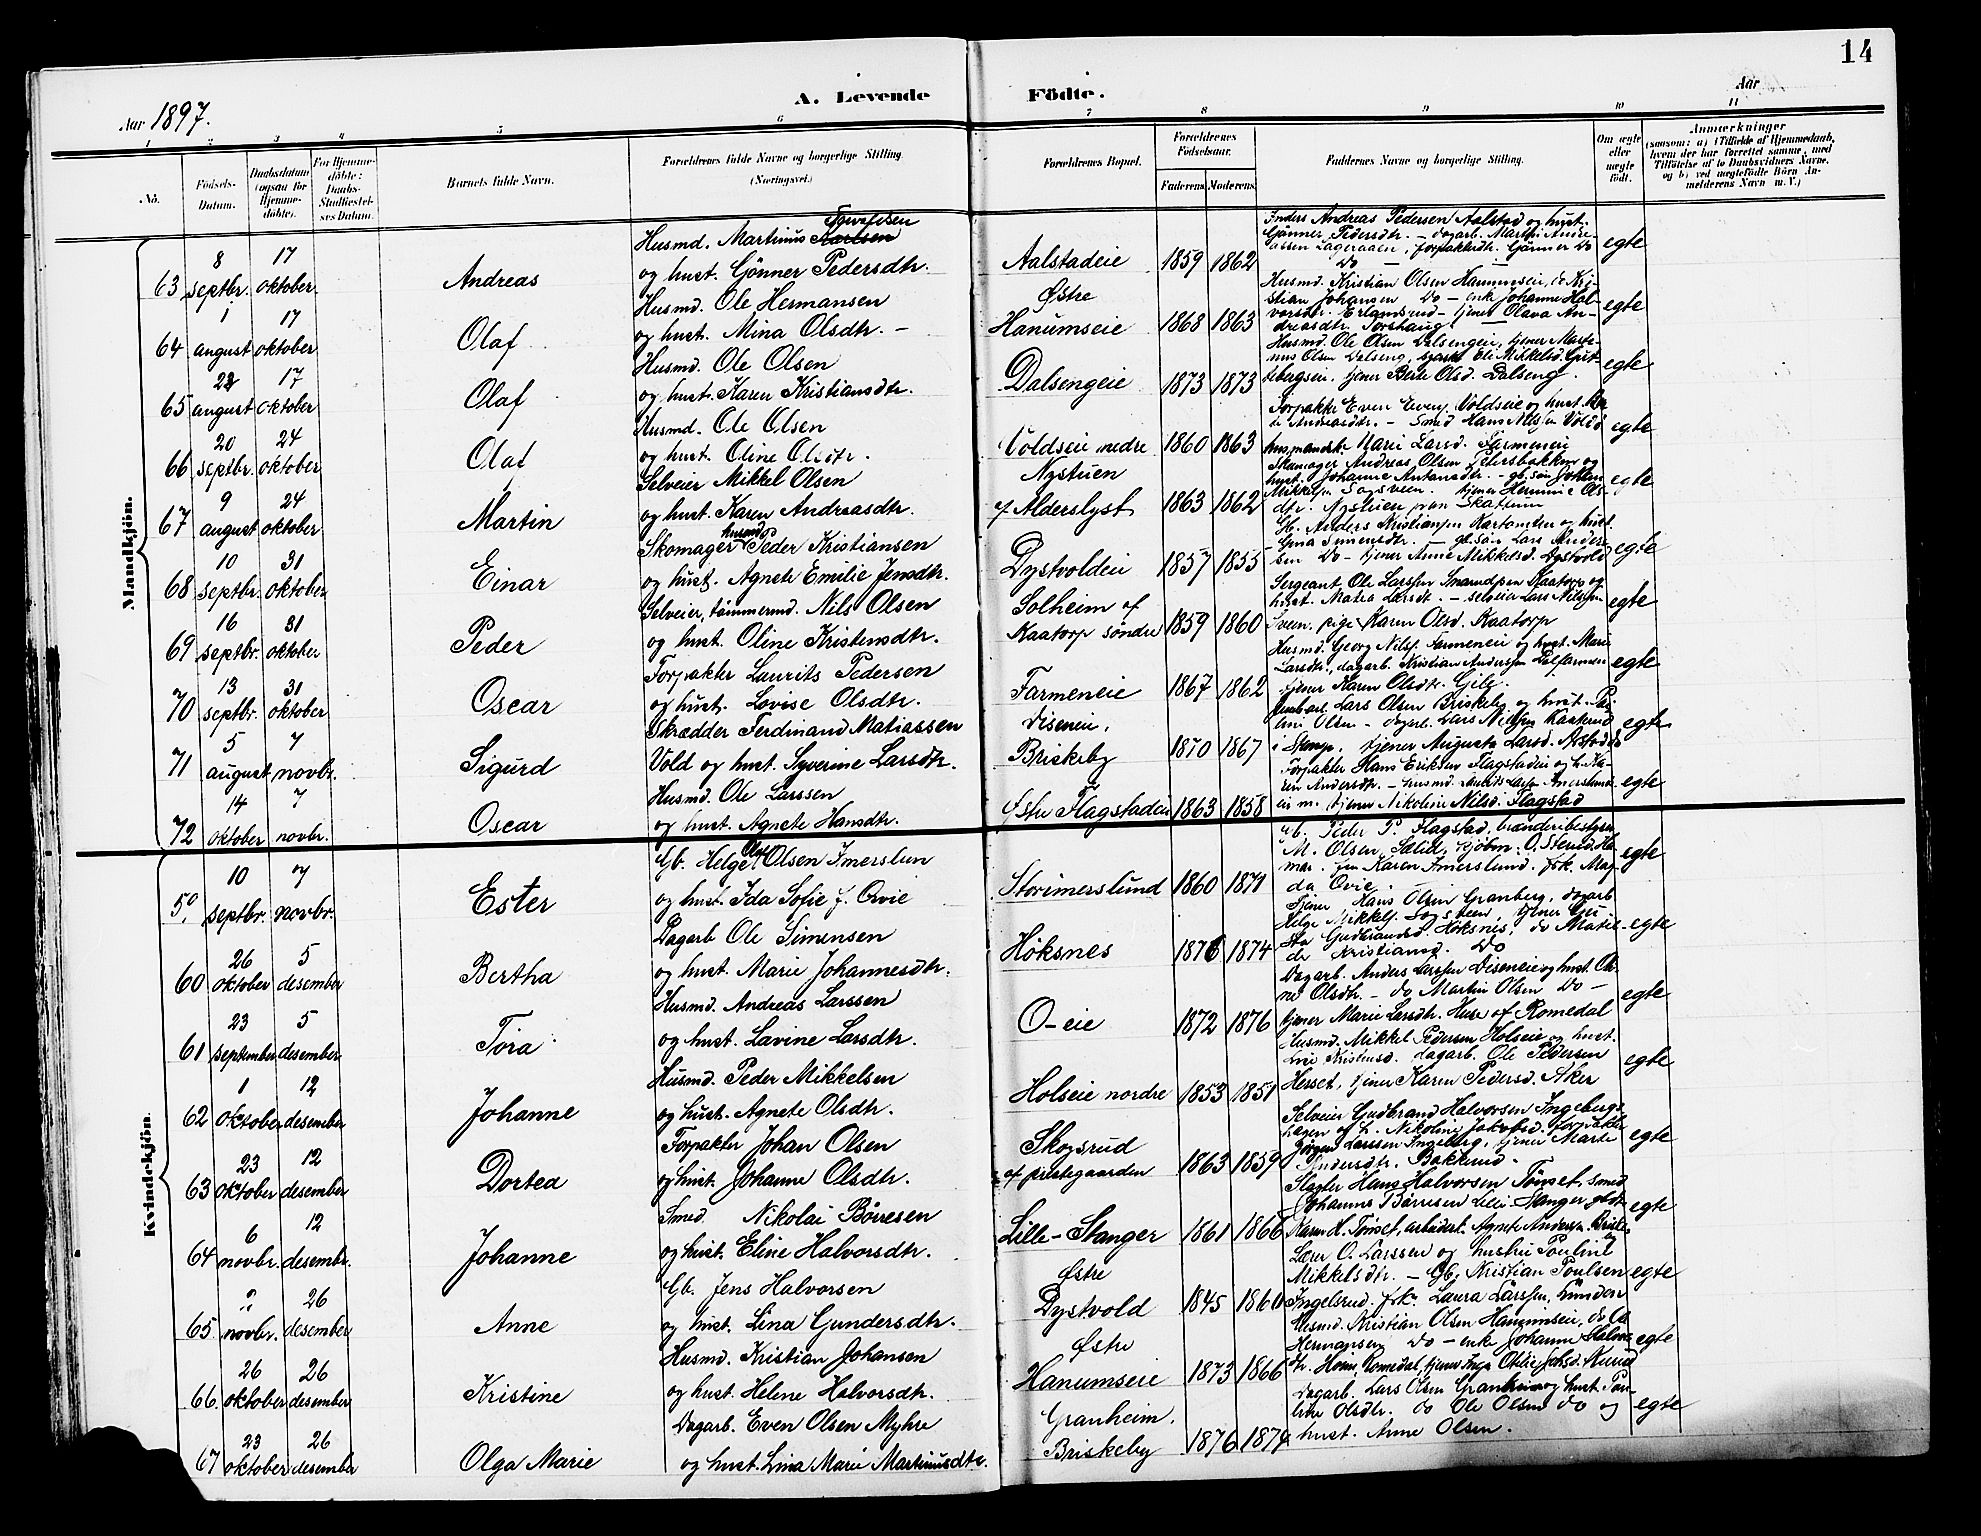 14
Aar 1897.
A. Levende Födte.
Aar
1 2 3 4 5 6 7 8 9 10 11
No. Födsels-Datum. Daabsdatum (ogsaa for Hjemmedöbte). For Hjemmedöbte: Daabs-Stadfæstelses Datum. Barnets fulde Navn. Forældrenes fulde Navne og borgerlige Stilling (Næringsvei.) Forældrenes Bopæl. Forældrenes Födselsaar. Faderens. Moderens. Faddernes Navne og borgerlige Stilling. Om ægte eller uægte födt. Anmærkninger (saasom: a) i Tilfælde af Hjemmedaab, hvem der har forrettet samme, med Tilföielse af to Daabsvidners Navne, og b) ved uægtefödte Börn Anmelderens Navn m. V.)
Mandkjön.
63 8 septbr. 17 oktober. Andreas Husmd. Martinus og hust. Gönner Pedersdtr. Aalstadeie 1859 1862 Anders Andreas Pedersen Aalstad og hust. Gönner Pedersdtr. — dagarb. Martin Andreassen Lageraaen, forpakterdtr. Gönner Do Do — egte
64 1 august 17 oktober Olaf Husmd. Ole Hermansen og hust. Mina Olsdtr. — Østre Hanumseie 1868 1863 Husmd. Kristian Olsen Hanumseie, do Kristian Johansen Do — enke Johanne Halvorsdtr. Erlandsrud — tjener Olava Andreasdtr. Torshaug egte
65 22 august 17 oktober Olaf Husmd. Ole Olsen og hust. Karen Kristiansdtr. Dalsengeie 1873 1873 Husmd. Ole Olsen Dalsengeie, tjener Martinus Olsen Dalseng, Eli Mikkelsd. tjener Berte Olsd. Dalseng. egte
66 20 septbr. 24 oktober Olaf Husmd. Ole Olsen og hust. Oline Olsdtr. Voldseie nedre 1860 1863 Forpakter Even Evens. Voldseie og hust. Andreasdtr. — Smed Hans Nilssen Vold Marie Larsd. Farmeneie egte
67 9 august 24 oktober Martin Selveier Mikkel Olsen og hust. Karen Andreasdtr. Nystuen af Alderslyst 1863 1862 Skomager Andreas Olsen Petersbakken og hust. Johanne Antonsdtr. — Mikkelsen Sogsveen. tjener Hermine Olsdtr. egte
68 10 septbr. 31 oktober Einar Skomager husmd. Peder Kristiansen og hust. Agnete Emilie Jensdtr. Dystvoldeie 1857 1855 Gb. Anders Kristiansen og hust. Gina Simensdtr. — gb.søn Lars Andersen Do — tjener Anne Mikkelsd. Dystvold egte
69 16 septbr. 31 oktober Peder Selveier, tömmermd. Nils Olsen og hust. Oline Kristensdtr. Solheim af Kaatorp søndre 1859 1860 Sergeant Ole Larssen Kaatorp og hust. — selveier Lars Nilssen Sveen, pige Karen Olsd. Kaatorp egte
70 13 septbr. 31 oktober Oscar Forpakter Laurits Pedersen og hust. Lovise Olsdtr. Farmeneie 1867 1862 Husmd. Georg Nilss. Farmeneie og hust. Marie Larsdtr., dagarb. Kristian Anderssen tjener Karen Olsdtr. egte
71 5 august 7 novbr. Sigurd Skrædder Ferdinand Matiassen Vold og hust. Syverine Larsdtr. Diseneie, Briskeby 1870 1867 Lars Olsen Briskeby og hust. Olsen — dagarb. Lars Nilssen i Stange, tjener Augusta Larsd. egte
72 14 oktober 7 novbr. Oscar Husmd. Ole Larssen og hust. Agnete Hansdtr. Østre Flagstadeie 1863 1858 Forpakter Hans Eriksen Flagstadeie og h. Karen Andersdtr. — husmd. tjener Nikoline Nilsd. Flagstad egte
Kvindekjön.
10 septbr. 7 novbr. Ester Gb. Helge Olsen Imerslun og hust. Ida Sofie f. Qvie Storimerslund 1860 1871 Gb. Peder P. Flagstad, brænderibestyrer M. Olsen, Sælid, kjøbm. O. Sterud, Hamar. fru Karen Imerslund. frk. Magda Qvie. egte
60 26 oktober 5 desember Bertha Dagarb Ole Simensen og hust. Marie Johannesdtr. Höksnes 1876 1874 Tjener Hans Olsen Granberg, dagarb Helge Mikkels. Sogsveen, tjener Gusta Gudbrandsd. Höksnes, do Matilde Kristiansd. Do egte
61 23 september 5 desember Tora Husmd. Andreas Larssen og hust. Lavine Larsdtr. O-eie 1872 1876 Dagarb. Anders Larssen Diseneie og hust. Olsdtr. — do Martin Olsen Do — tjener Marie Larsdtr. Huse af Romedal egte
62 1 oktober 12 desember Johanne Husmd. Peder Mikkelsen og hust. Agnete Olsdtr. Holseie nordre 1853 1851 Husmd. Mikkel Pedersen Holseie og hust. Kristensd. dagarb. Ole Pedersen Herset, tjener Karen Pedersd. Aker egte
63 23 oktober 12 desember Dortea Forpakter Johan Olsen og hust. Johanne Olsdtr. Skogsrud af prestegaarden 1863 1859 Selveier Gudbrand Halvorsen Ingebergshagen og h. Nikoline Jakobsd. forpakter Jørgen Larssen Ingeberg, tjener Marte Andersdtr. Bakkerud — egte
64 6 novbr. 12 desembr. Johanne Smed Nikolai Börresen og hust. Eline Halvorsdtr. Lille-Stanger 1861 1866 Slagter Hans Halvorsen Tönset, smed Johannes Börresen Lille Stanger, Karen H. Tönset, arbeidert. Agnete Anderssen egte
65 novbr. 26 desember Anne Gb. Jens Halvorsen og hust. Lina Gundersdtr. Østre Dystvold 1845 1860 Lærer O. Larssen og hustru Pouline Mikkelsdtr. — Gb. Kristian Poulsen Ingelsrud. frk. Laura Larssen, egte
66 26 oktober 26 desember Kristine Husmd. Kristian Johansen og hust. Helene Halvorsdtr. Østre Hanumseie 1873 1866 Husmd. Kristian Olsen Hanumseie, do Ole Hermansen Do — enke Johanne Halvorsdtr. Romedal, tjener Inga egte
67 23 oktober 26 desember Olga Marie Dagarb. Even Olsen Myhre og hust. Lina Marie Martinusdtr. Granheim, Briskeby 1876 1874 Dagarb. Lars Olsen Granheim og hust. Pauline Olsdtr. do Ole Olsen do og hust. Anne Olsen. egte